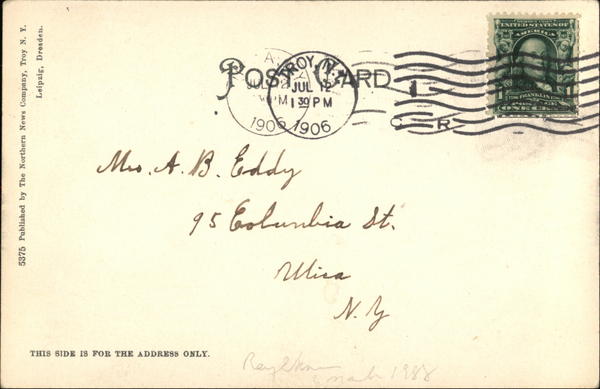 5375 Published by The Northern News Company, Troy N. Y.
Leipzig, Dresden.
POST CARD
TROY, N.Y.
JUL 12
1 30 PM
1906
A
JUL 12
PM
1906
1
C R
UNITED STATES OF
AMERICA
FRANKLIN
ONE
Mrs. A. B. Eddy
95 Columbia St.
Utica
N. Y
THIS SIDE IS FOR THE ADDRESS ONLY.
1988